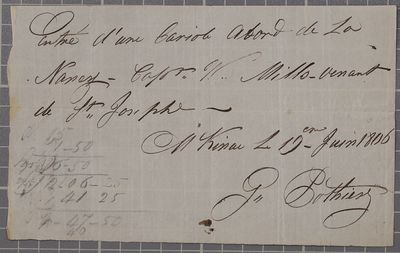 Entré d'une Cariole Abord de La
Nancy - Capt. W. Mills - venant
de St. Josephe -
M'Kinac Le 19en Juin 1806
Js Pothier
65
-50
-50
1206-25
41 25
47-50